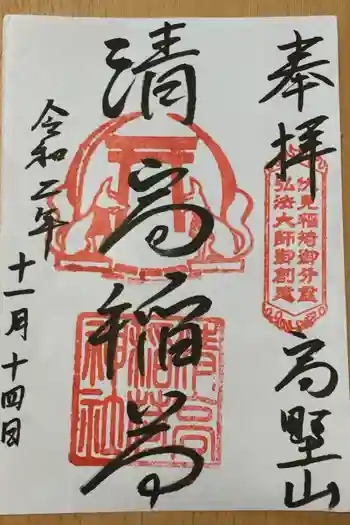 奉拝
伏見稲荷御分霊
弘法大師御創建
高野山
清高稲荷
清高
稲荷
神社
令和二年
十一月十四日